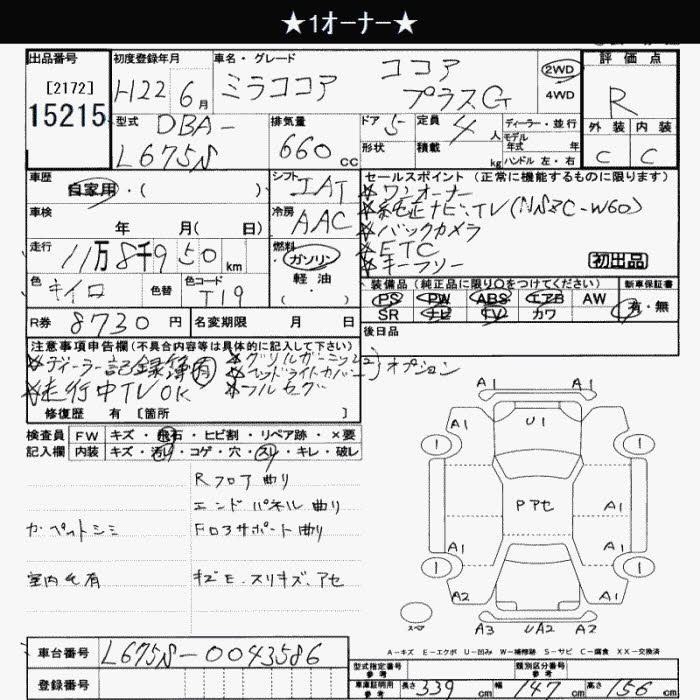 ★1オーナー★
出品番号
[2172]
15215
初度登録年月
H22 6月
車名・グレード
ミラココア
ココア
プラスG
2WD
4WD
評価点
R
外装 内装
C C
型式
DBA-
L675S
排気量
660 cc
ドア 5
形状
定員 4人
積載 kg
ディーラー・並行
モデル
年式 年
ハンドル 左・右
車歴
自家用・( )
シフト
IAT
セールスポイント (正常に機能するものに限ります)
ワンオーナー
純正ナビ、TV
バックカメラ
ETC
キーフリー
初出品
車検
年 月( 日)
冷房
AAC
走行
11万8千950km
燃料
ガソリン
軽油
( )
色
キイロ
色替
色コード
T19
装備品 (純正品に限り○をつけてください)
新車保証書
PS PW ABS エアB AW
SR ナビ TV カワ
有・無
R券 8730円
名変期限 月 日
後日品
注意事項申告欄 (不具合内容等は具体的に記入して下さい)
ディーラー記録簿有
走行中TV OK
フルセグ
オプション
修復歴 有 [箇所 ]
検査員
記入欄
FW キズ・飛石・ヒビ割・リペア跡・×要
内装 キズ・汚レ・コゲ・穴・スリ・キレ・破レ
Rフロア曲り
エンドパネル曲り
カーペットシミ
Fロアサポート曲り
室内 有
キズE、スリキズ、アセ
A1 A1
U1
1 1
A1
Pアセ
A1 A1
1 1
A2 A1
スペア
A3 UA2 A2
A-キズ E-エクボ U-凹み W-補修跡 S-サビ C-腐食 XX-交換済
車台番号
L675S-0043586
登録番号
型式指定番号
参考
類別区分番号
車庫証明用
参考
長さ 339 cm
幅 147 cm
高さ 156 cm